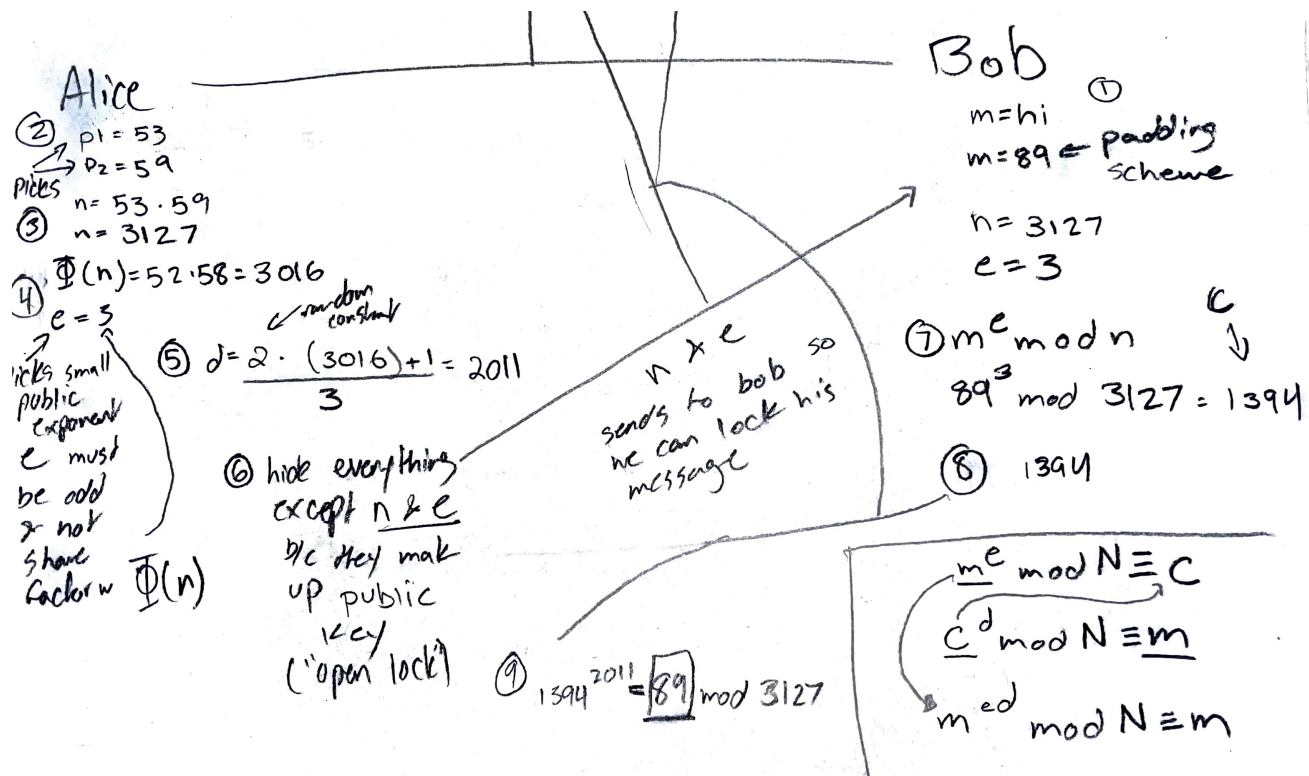 Alice
② p1 = 53
p2 = 59
picks
n = 53 · 59
③ n = 3127
Φ(n) = 52 · 58 = 3016
④ e = 3
icks small
public
exponent
e must
be odd
& not
share
factor w Φ(n)
random
constant
⑤ d = 2 · (3016) + 1 = 2011
3
⑥ hide everything
except n & e
b/c they mak
up public
key
("open lock")
n & e
sends to bob so
he can lock his
message
Bob
①
m = hi
m = 89 ← padding
scheme
n = 3127
e = 3
C
⑦ m^e mod n
89^3 mod 3127 = 1394
⑧ 1394
⑨ 1394^2011 = 89 mod 3127
m^e mod N ≡ C
C^d mod N ≡ m
m^ed mod N ≡ m